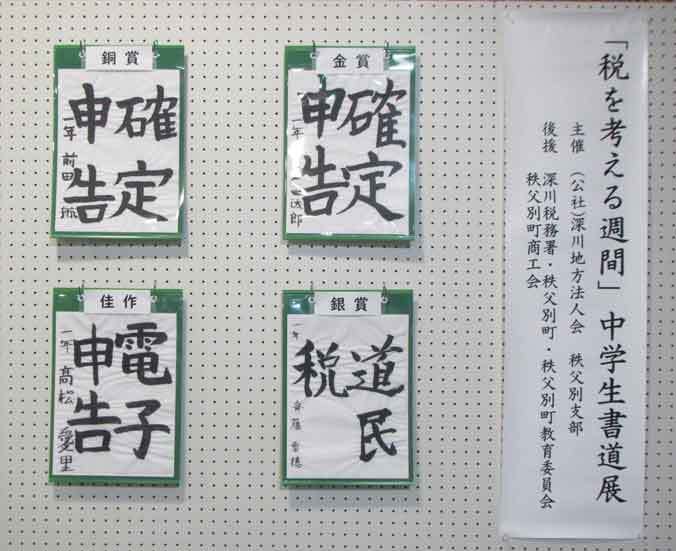 「税を考える週間」中学生書道展
主催 (公社)深川地方法人会 秩父別支部
後援 深川税務署・秩父別町・秩父別町教育委員会
秩父別町商工会
金賞
確定
申告
一年
銅賞
確定
申告
一年 前田
銀賞
道民
税
一年 斉藤
佳作
電子
申告
一年 髙松 愛里